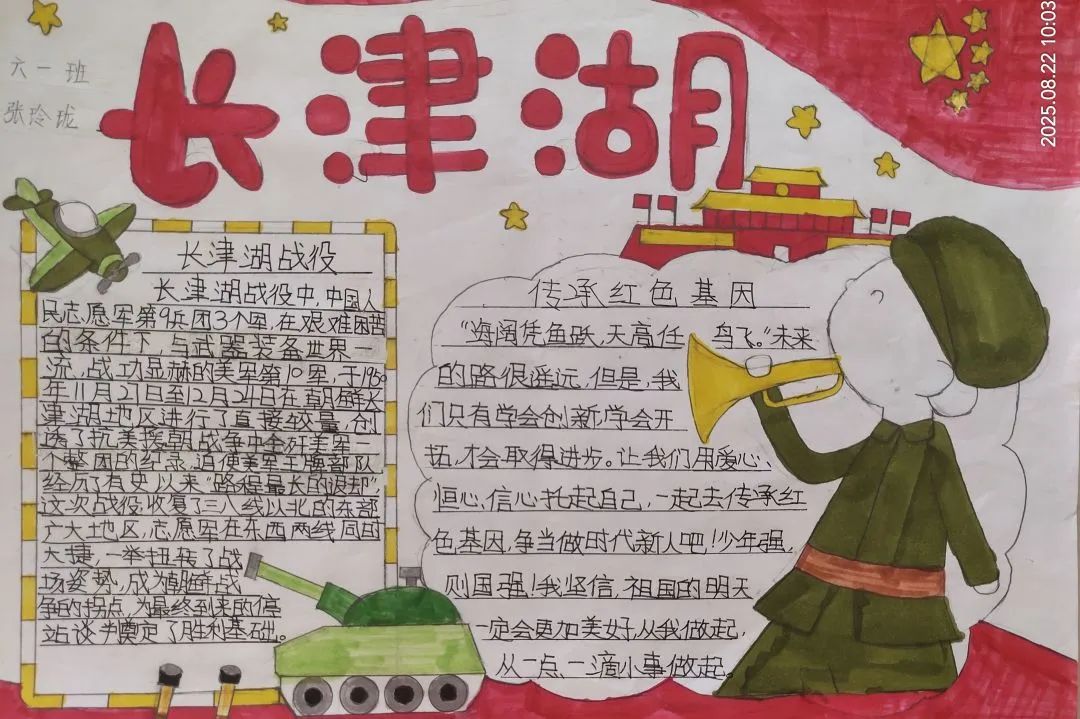 2025.08.22 10:03
六一班
张玲珑
长津湖
长津湖战役
长津湖战役中,中国人
民志愿军第9兵团3个军,在艰难困苦
的条件下,与武器装备世界一
流,战功显赫的美军第10军,于1950
年11月27日至12月24日在朝鲜长
津湖地区进行了直接较量,创
造了抗美援朝战争中全歼美军一
个整团的纪录,迫使美军王牌部队
经历了有史以来"路程最长的退却"
这次战役,收复了三八线以北的东部
广大地区,志愿军在东西两线同时
大捷,一举扭转了战
场姿势,成为朝鲜战
争的拐点,为最终到来的停
站谈判奠定了胜利基础。
传承红色基因
"海阔凭鱼跃,天高任鸟飞。"未来
的路很遥远,但是,我
们只有学会创新,学会开
拓,才会取得进步。让我们用爱心、
恒心、信心托起自己,一起去传承红
色基因,争当做时代新人吧!少年强,
则国强!我坚信,祖国的明天
一定会更加美好,从我做起,
从一点一滴小事做起。